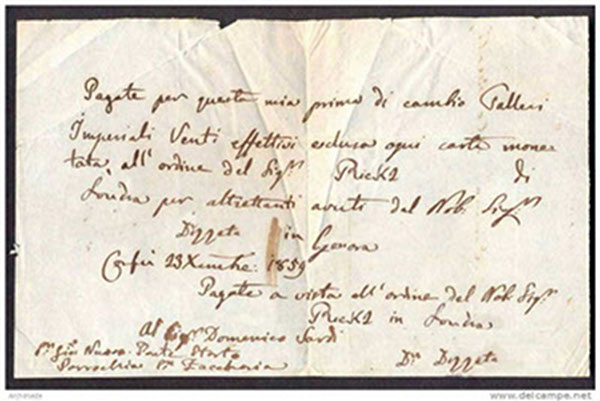 Pagate per questa mia prima di cambio Talleri
Imperiali Venti effettivi esclusa ogni carta mone-
tata, all' ordine del Sigr.
di
Londra per altrettanti avuti dal Nob. Sigr.
in Genova
Corfù 23 Xembre: 1859
Pagate a vista all' ordine del Nob Sigr.
in Londra
Al Sigr Domenico Sardi
Ponte Storto
Parrochia
delcampe.net